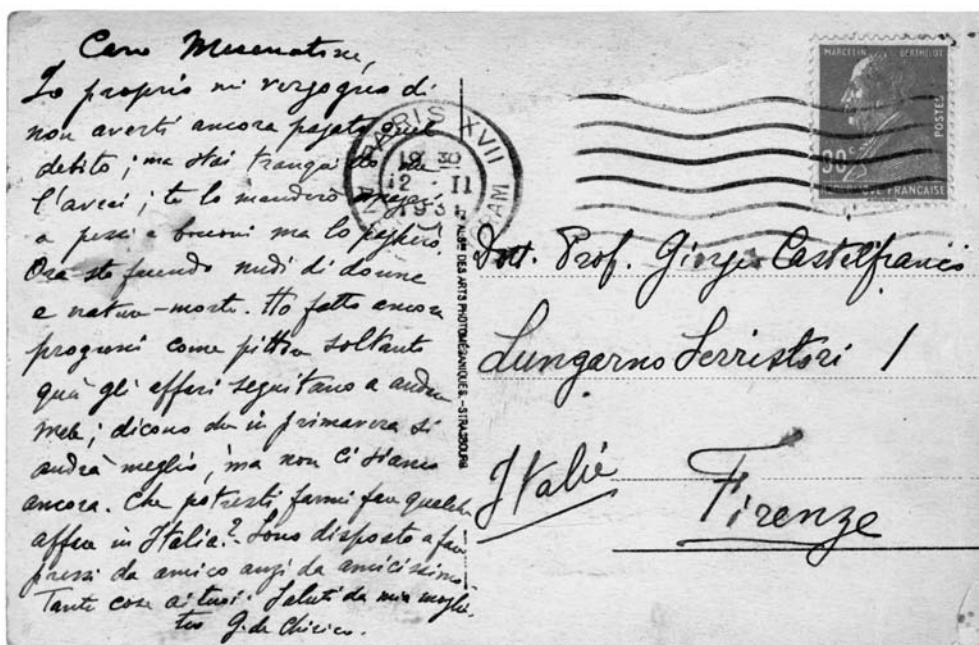 Caro Mecenatone,
Io proprio mi vergogno di
non averti ancora pagato quel
debito; ma stai tranquillo che
l'avrai; te lo manderò
a pezzi e bocconi ma lo pagherò.
Ora sto facendo nudi di donne
e nature-morte. Ho fatto ancora
progressi come pittore soltanto
quà gli affari seguitano a andare
male; dicono che in primavera si
andrà meglio, ma non ci siamo
ancora. Che potresti farmi fare qualche
affare in Italia? Sono disposto a fare
prezzi da amico anzi da amicissimo
Tante cose ai tuoi. Saluti da mia moglie.
tuo G. de Chirico.
ALSA DES ARTS PHOTOMÉCANIQUES. - STRASBOURG
PARIS XVII
19 30
12 - II
MARCELIN BERTHELOT
POSTES
90c
RÉPUBLIQUE FRANÇAISE
Dott. Prof. Giorgio Castelfranco
Lungarno Serristori 1
Italie
Firenze